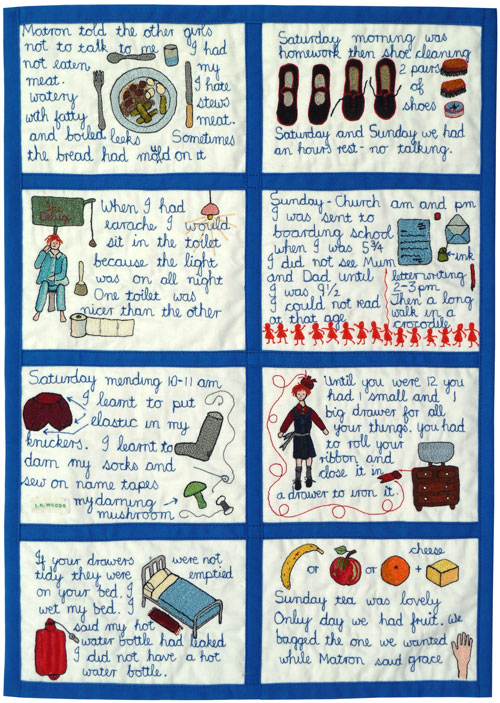 Matron told the other girls
not to talk to me I had
not eaten my
meat. I hate
watery stews
with fatty meat.
and boiled leeks Sometimes
the bread had mold on it
Saturday morning was
homework then shoe cleaning
2 pairs
of
shoes
Saturday and Sunday we had
an hours rest - no talking.
The
Deluge
When I had
earache I would
sit in the toilet
because the light
was on all night
One toilet was
nicer than the other
Sunday - Church am and pm
I was sent to
boarding school
when I was 5¾
I did not see Mum
and Dad until
I was 9½
I could not read
at that age
ink
letter writing
2-3 pm
Then a long
walk in a
crocodile
Saturday mending 10-11 am
I learnt to put
elastic in my
knickers. I learnt to
darn my socks and
sew on name tapes
my darning
mushroom
Until you were 12 you
had 1 small and 1
big drawer for all
your things. you had
to roll your
ribbon and
close it in
a drawer to iron it.
If your drawers were not
tidy they were emptied
on your bed. I
wet my bed. I
said my hot
water bottle had leaked
I did not have a hot
water bottle.
cheese
or or +
Sunday tea was lovely
Only day we had fruit. We
bagged the one we wanted
while Matron said grace